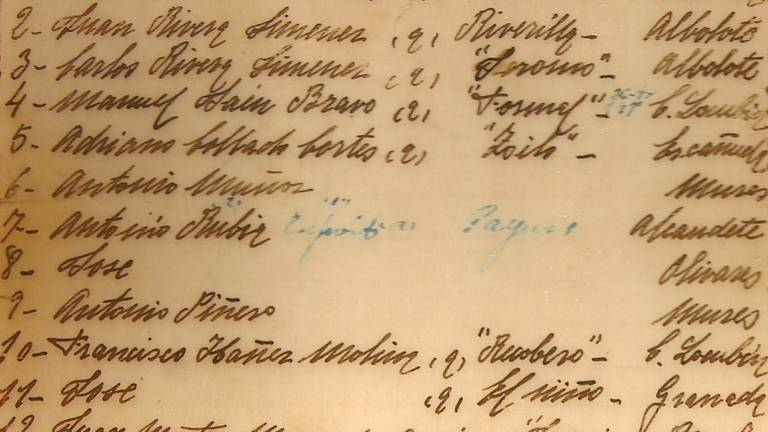 2- Juan Rivera Jimenez (a) Riverilla- Albolote
3- Carlos Rivera Jimenez (a) "Jeromo"- Albolote
4- Manuel Jaén Bravo (a)
5- Adriano Collado Cortes (a) "Zoilo"-
6- Antonio Muñoz Mures
7- Antonio Rubia Alcaudete
8- Jose Olivares
9- Antonio Piñero Mures
10- Francisco Ibañez Molina (a)
11- Jose (a) El niño- Granada